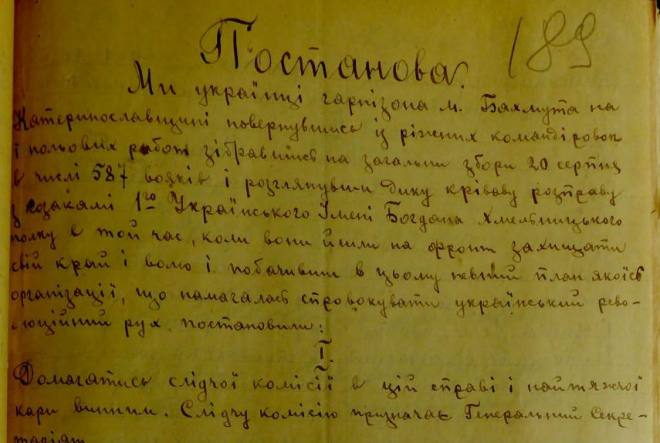 189
Постанова.
Ми українці гарнізона м. Бахмута на
Катеринославщині повернувшись із ріжних командіровок
і польових работ зібравшись на загальни збори 20 серпня
в числі 587 вояків і розглянувши дику кріваву розправу
з козакамі 1го Українського Імені Богдана Хмельницького
полку в той час, коли вони йшли на фронт захищати
свій край і волю і побачивши в цьому певний план якоїсь
організації, що намагалась спровокувати український рево-
люційний рух, постановили:
I.
Домагатись слідчої комісії в цій справі і найтяжчої
кари винним. Слідчу комісію призначає Генеральний Секре-
таріят